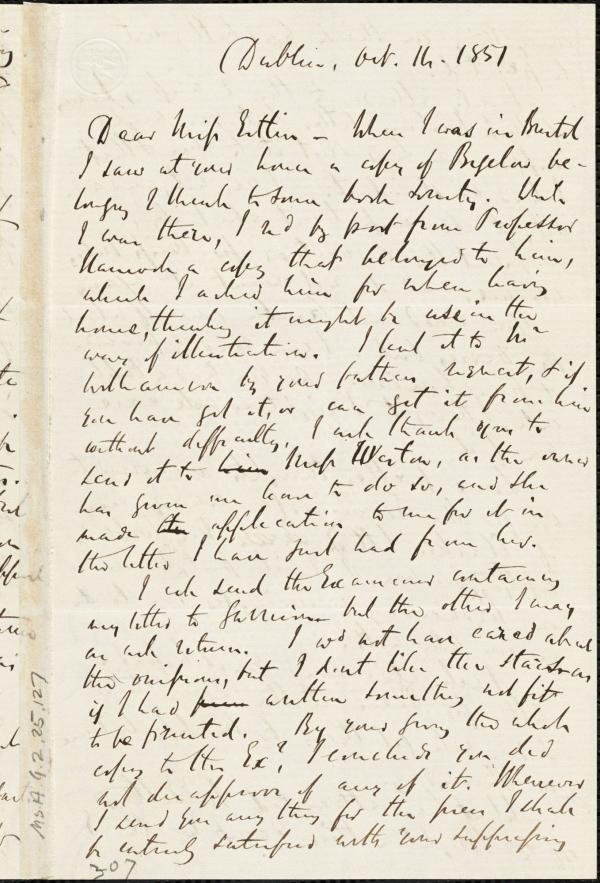 Dublin, Oct. 16. 1851
Dear Miss Estlin – When I was in Bristol
I saw at your house a copy of Bigelow be-
longing I think to some book society. While
I was there, I rd by post from Professor
Hancock a copy that belonged to him,
which I asked him for when leaving
home, thinking it might be use in the
way of illustration. I lent it to Mr
Williamson by your father's request, & if
you have got it, or can get it from him
without difficulty, I will thank you to
send it to him Miss Weston, as the owner
has given me leave to do so, and she
made the application to me for it in
the letter I have just had from her.
I will send the Examiner containing
my letter to Garrison but the other I may
as well return. I wd not have cared about
the omissions, but I don't like the stars as
if I had written something not fit
to be printed. By your giving the whole
copy to the Exr, I conclude you did
not disapprove of any of it. Whenever
I send you any thing for the press I shall
be entirely satisfied with your suppressing
307
Ms.A.9.2.25.127